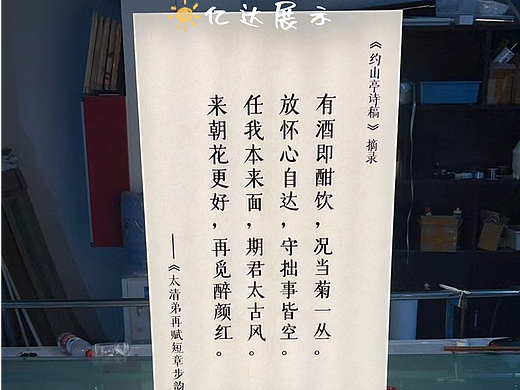 亿达展示
《约山亭诗稿》摘录
有酒即酣饮，况当菊一丛。
放怀心自达，守拙事皆空。
任我本来面，期君太古风。
来朝花更好，再觅醉颜红。
——《太清弟再赋短章步韵